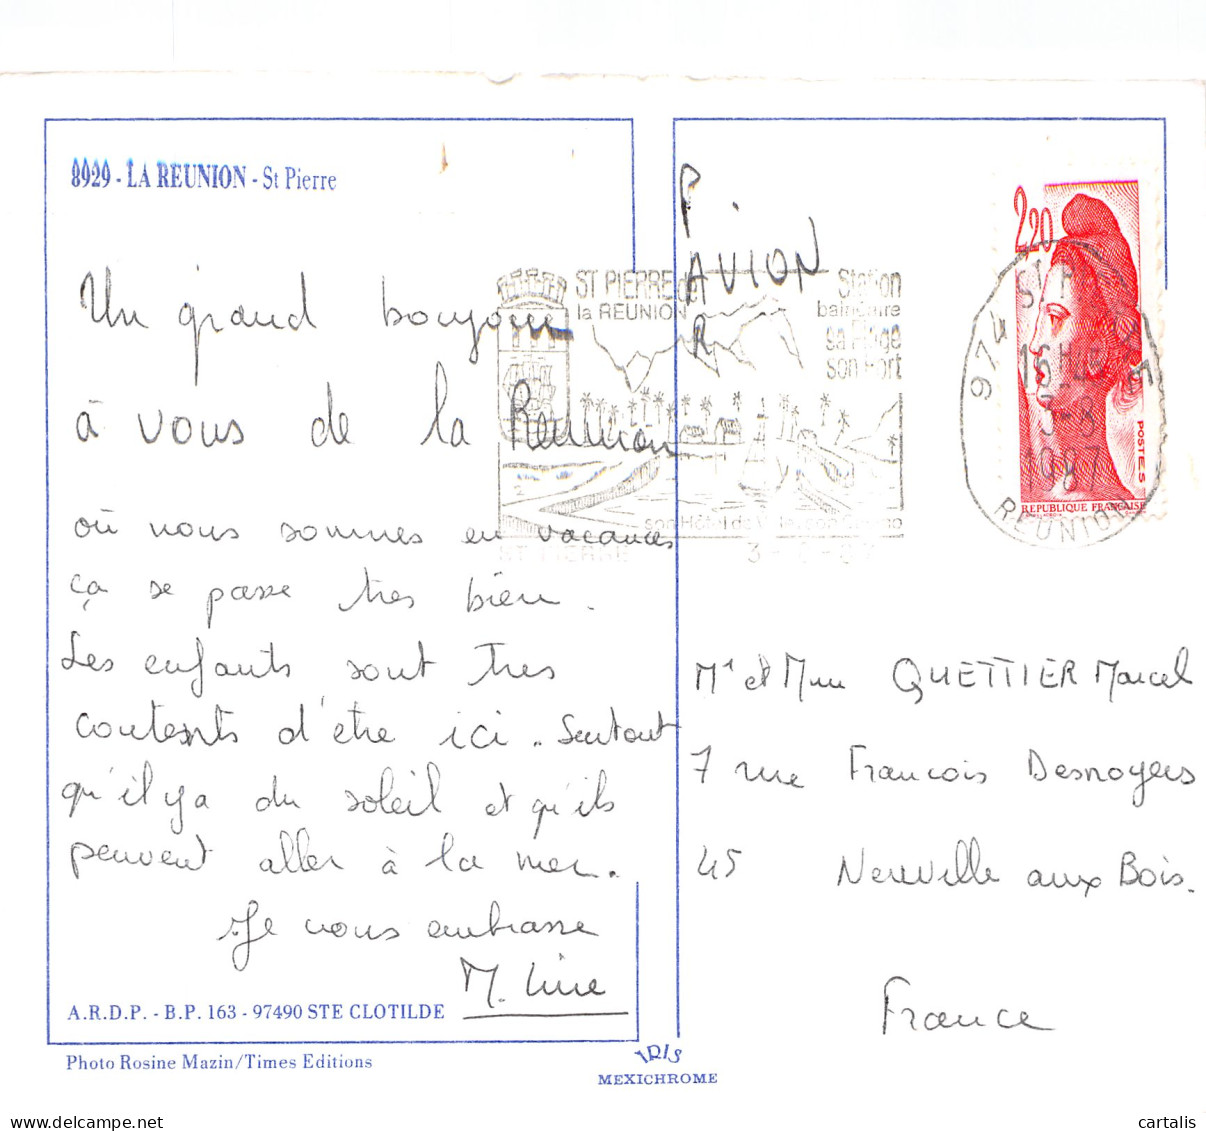 8929 - LA REUNION - St Pierre
Un grand bonjour
à vous de la Reunion
où nous sommes en vacances
ça se passe tres bien.
Les enfants sont tres
contents d'être ici. Surtout
qu'il y a du soleil et qu'ils
peuvent aller à la mer.
Je vous embrasse
M. Line
A.R.D.P. - B.P. 163 - 97490 STE CLOTILDE
Photo Rosine Mazin/Times Editions
IRIS
MEXICHROME
PAR AVION
ST PIERRE de
la REUNION
Station
balnéaire
sa Plage
son Port
son Hôtel de Ville, son Casino
ST PIERRE
2,20
POSTES
REPUBLIQUE FRANÇAISE
974 ST PIERRE
16H
3-8
1987
REUNION
Mr et Mme QUETTIER Marcel
7 rue Francois Desnoyers
45 Neuville aux Bois.
France
cartalis